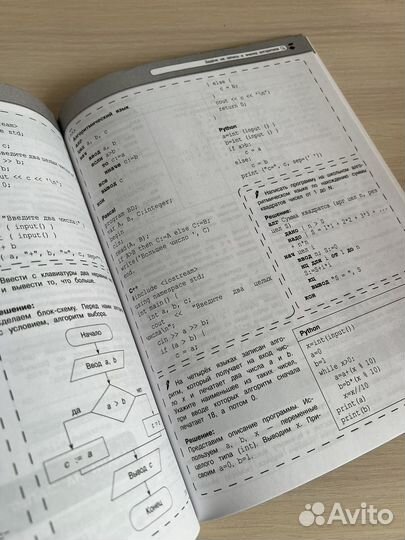 Задачи на запись и анализ алгоритмов
stream>
std;
два целых
>> b;
out << c << '\n';
"Введите два числа:"
( input() )
input() )
+ b
(a, "+", b, "=", c, sep=
Ввести с клавиатуры два
и вывести то, что больше.
Решение:
Сделаем блок-схему. Перед нами
с условием, алгоритм выбора.
Начало
Ввод a, b
да
a > b
нет
c := a
Вывод c
Конец
Алгоритмический язык
алг
цел a, b, c
нач ввод a, b
если a>b
то c:=a
иначе c:=b
все
вывод c
кон
Pascal
program
var
A, B, C:integer;
begin
read(A, B);
if A>B then C:=A else C:=B;
write('Большее число ', C)
end.
C++
#include <iostream>
using namespace std;
int main() {
int a, b, c;
cout << "Введите два целых
числа\n";
cin >> a >> b;
if (a > b) {
c = a;
} else {
c = b;
}
cout << c << '\n';
return 0;
}
Python
a=int (input () )
b=int (input () )
if a>b:
c = a
else:
c = b
print ("c=", c, sep=' ')
Написать программу на школьном алгоритмическом
языке по нахождению суммы
квадратов чисел от 1 до N.
Решение:
алг Сумма квадратов (арг цел n, рез
цел S)
дано | n > 0
надо | S = 1*1 + 2*2 + 3*3 + ...
+ n*n
нач цел i
ввод n; S:=0
нц для i от 1 до n
S:=S+i*i
кц
вывод "S = ", S
кон
На четырёх языках записан алгоритм,
который получает на вход число
x и печатает два числа a и b.
Укажите наименьшее из таких чисел x,
при вводе которых алгоритм сначала
печатает 18, а потом 0.
Решение:
Представим описание программы. Используем
a, b, x — переменные
целого типа (int). Выводим x. Присвоим
a=0, b=1.
Python
x=int(input())
a=0
b=1
while x>0:
a=a+(x % 10)
b=b*(x % 10)
x=x//10
print(a)
print(b)
Avito